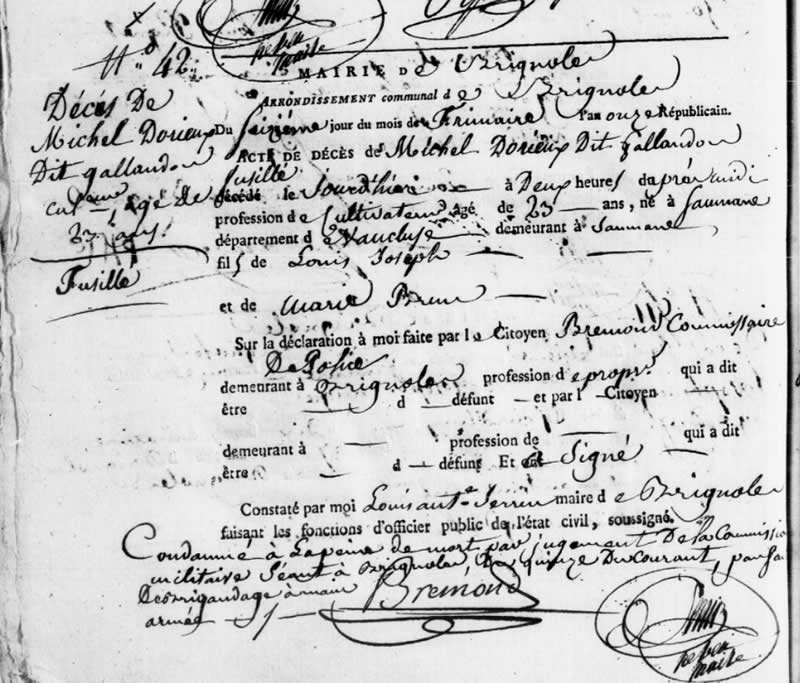 N° 42
MAIRIE DE Brignole
ARRONDISSEMENT communal de Brignole
Décés De
Michel Dorieux
Dit gallandon
cult.eur agé de
23 ans.
Fusille
Du Seizième jour du mois de Frimaire l'an onze Républicain.
ACTE DE DÉCÈS de Michel Dorieux Dit gallandon
fusille
décédé le Jourd'hui à Deux heures du
profession de Cultivateur âgé de 23 ans, né à Saumane
département de Vaucluse demeurant à Saumane
fils de Louis Joseph
et de Marie Brun
Sur la déclaration à moi faite par le Citoyen Bremond Commissaire
De Police
demeurant à Brignole profession de propre. qui a dit
être d défunt et par l Citoyen
demeurant à profession de qui a dit
être d défunt Et Signé
Constaté par moi Louis ant.e maire de Brignole
faisant les fonctions d'officier public de l'état civil, soussigné.
Condamné à La peine de mort par jugement De la Commission
militaire Séant à Brignole, Du quinze Du Courant,
De Brigandage à main
armée
Bremond
maire